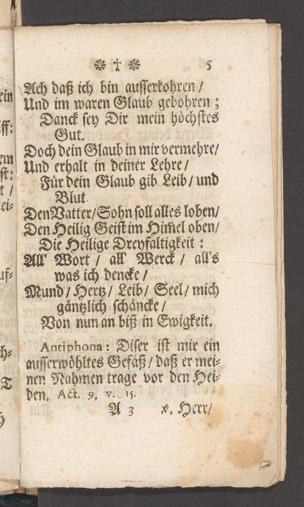 ❊ ✝ ❊ 5
Ach daß ich bin ausserkohren /
Und im waren Glaub gebohren ;
Danck sey Dir mein höchstes
Gut.
Doch dein Glaub in mir vermehre/
Und erhalt in deiner Lehre /
Für dein Glaub gib Leib / und
Blut
Den Vatter/Sohn soll alles loben/
Den Heilig Geist im Him̃el oben/
Die Heilige Dreyfaltigkeit :
All' Wort / all' Werck / all's
was ich dencke /
Mund / Hertz / Leib / Seel / mich
gäntzlich schäncke /
Von nun an biß in Ewigkeit.
Antiphona: Diser ist mir ein
ausserwöhltes Gefäß / daß er mei-
nen Nahmen trage vor den Hei-
den. Act. 9. v. 15.
A 3 ℣. Herr/